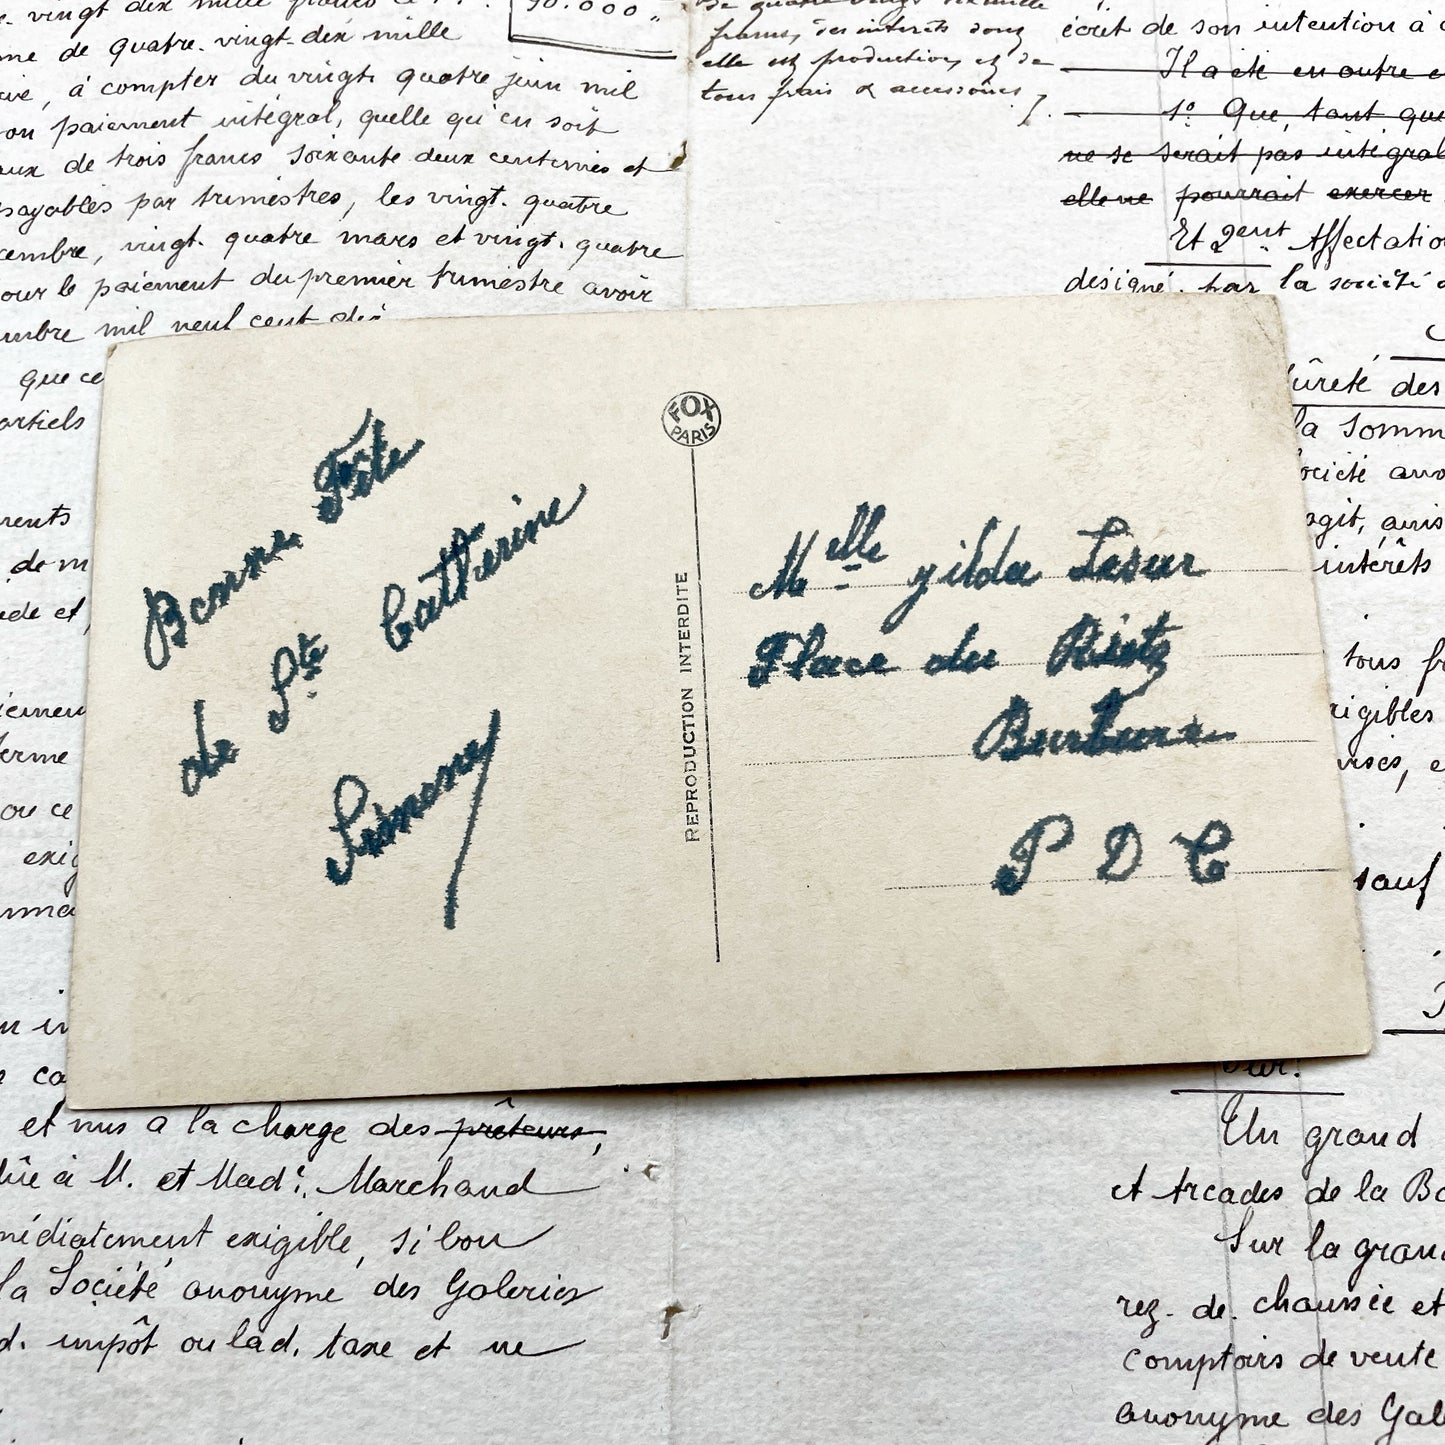 vingt dix mille francs
90.000
me de quatre-vingt-dix mille
, à compter du vingt quatre juin mil
on paiement intégral, quelle qu'en soit
aux de trois francs soixante deux centimes et
payables par trimestres, les vingt-quatre
cembre, vingt-quatre mars et vingt-quatre
our le paiement du premier trimestre avoir
mbre mil neuf cent dix
que ce
artiels
de m
ide et,
erme
ou ce
exig
et mis à la charge des prêteurs,
dûe à M. et Made. Marchand
médiatement exigible, si bon
la Société anonyme des Galeries
d. impôt ou lad. taxe et ne
de quatre vingt dix mille
francs, des intérêts dont
elle est production, et de
tous frais & accessoires
écrit de son intention à
Il a été en outre
1o. Que, tant que
ne se serait pas intégral
elle ne pourrait exercer
Et 2ent. Affectation
désigné par la société
ûreté des
la somm
ociété ano
agit, ains
intérêts
tous fr
rigibles
sauf
Un grand
et Arcades de la Bo
Sur la gran
rez-de-chaussée et
comptoirs de vente
anonyme des Gal
Bonne Fête
de Ste Catherine
Simone
FOX
PARIS
REPRODUCTION INTERDITE
Melle gilda Lesur
Place du Rietz
Burbure
P D C